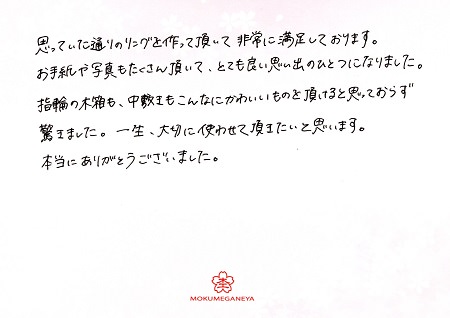 思っていた通りのリングを作って頂いて 非常に満足しております。
お手紙や写真もたくさん頂いて、とても良い思い出のひとつになりました。
指輪の木箱も、中敷きもこんなにかわいいものを頂けると思っておらず
驚きました。一生、大切に使わせて頂きたいと思います。
本当にありがとうございました。
MOKUMEGANEYA